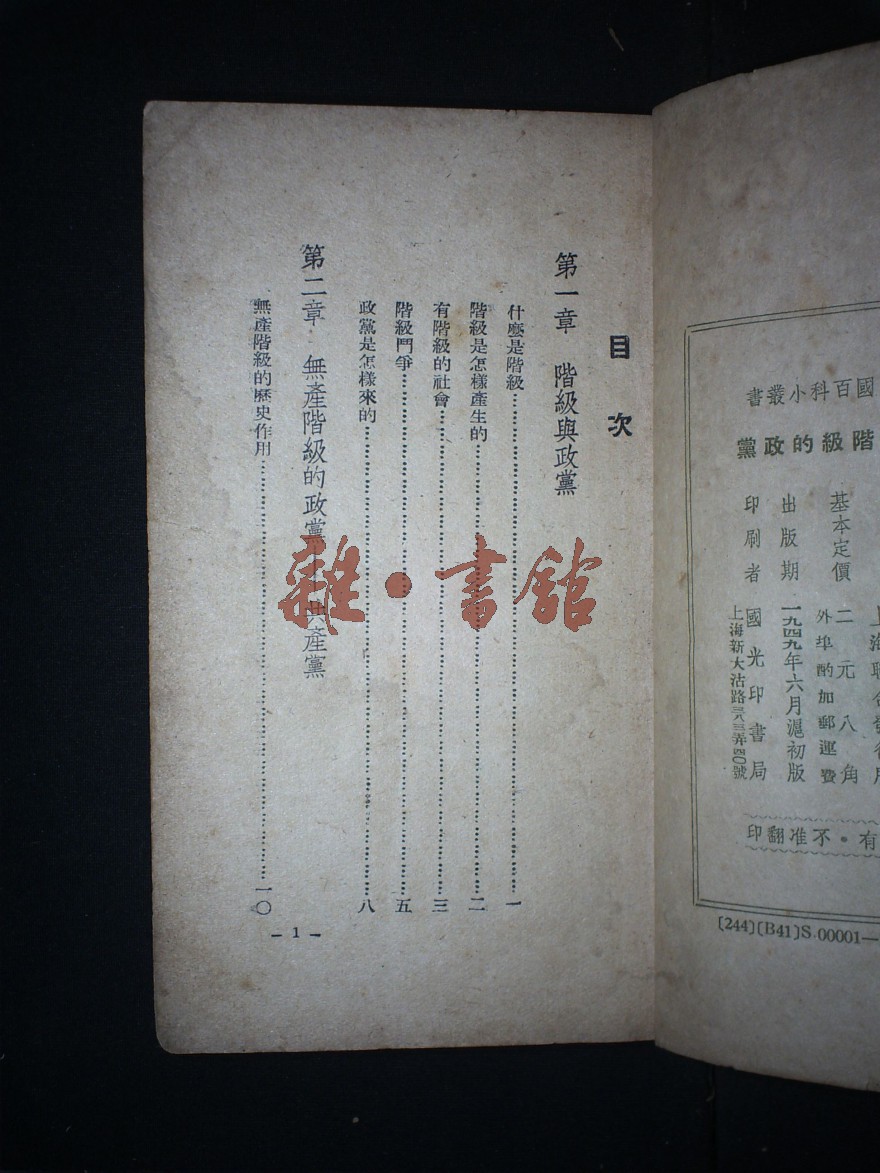 國百科小叢書
階級的政黨
基本定價 二元八角
外埠酌加郵運費
出版期 一九四九年六月滬初版
印刷者 國光印書局
上海新大沽路三八三弄號
有・不准翻印
〔244〕〔B41〕S.00001—
目次
第一章 階級與政黨
什麼是階級……一
階級是怎樣產生的……二
有階級的社會……三
階級鬥爭……五
政黨是怎樣來的……八
第二章 無產階級的政黨——共產黨
無產階級的歷史作用……一〇
－1－
雜・書館